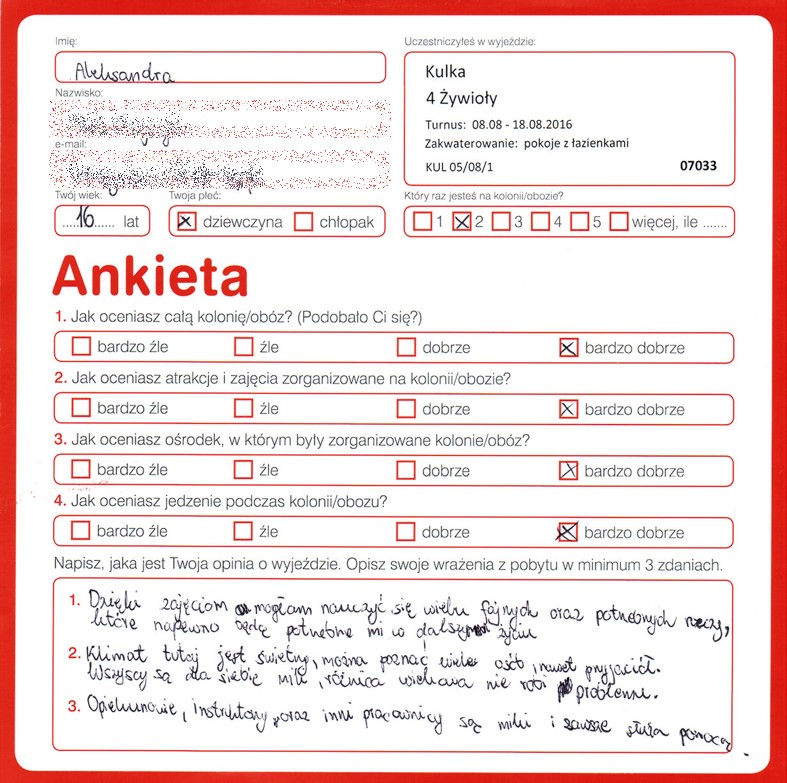 Imię:
Aleksandra
Nazwisko:
e-mail:
Twój wiek:
16 lat
Twoja płeć:
dziewczyna chłopak
Uczestniczyłeś w wyjeździe:
Kulka
4 Żywioły
Turnus: 08.08 - 18.08.2016
Zakwaterowanie: pokoje z łazienkami
KUL 05/08/1 07033
Który raz jesteś na kolonii/obozie?
1 2 3 4 5 więcej, ile .......
Ankieta
1. Jak oceniasz całą kolonię/obóz? (Podobało Ci się?)
bardzo źle źle dobrze bardzo dobrze
2. Jak oceniasz atrakcje i zajęcia zorganizowane na kolonii/obozie?
bardzo źle źle dobrze bardzo dobrze
3. Jak oceniasz ośrodek, w którym były zorganizowane kolonie/obóz?
bardzo źle źle dobrze bardzo dobrze
4. Jak oceniasz jedzenie podczas kolonii/obozu?
bardzo źle źle dobrze bardzo dobrze
Napisz, jaka jest Twoja opinia o wyjeździe. Opisz swoje wrażenia z pobytu w minimum 3 zdaniach.
1. Dzięki zajęciom mogłam nauczyć się wielu fajnych oraz potrzebnych rzeczy,
które napewno będą potrzebne mi w dalszym życiu
2. Klimat tutaj jest świetny, można poznać wiele osób, nawet przyjaciół.
Wszyscy są dla siebie mili, różnica wiekowa nie robi problemu.
3. Opiekunowie, instruktorzy, oraz inni pracownicy są mili i zawsze służą pomocą.